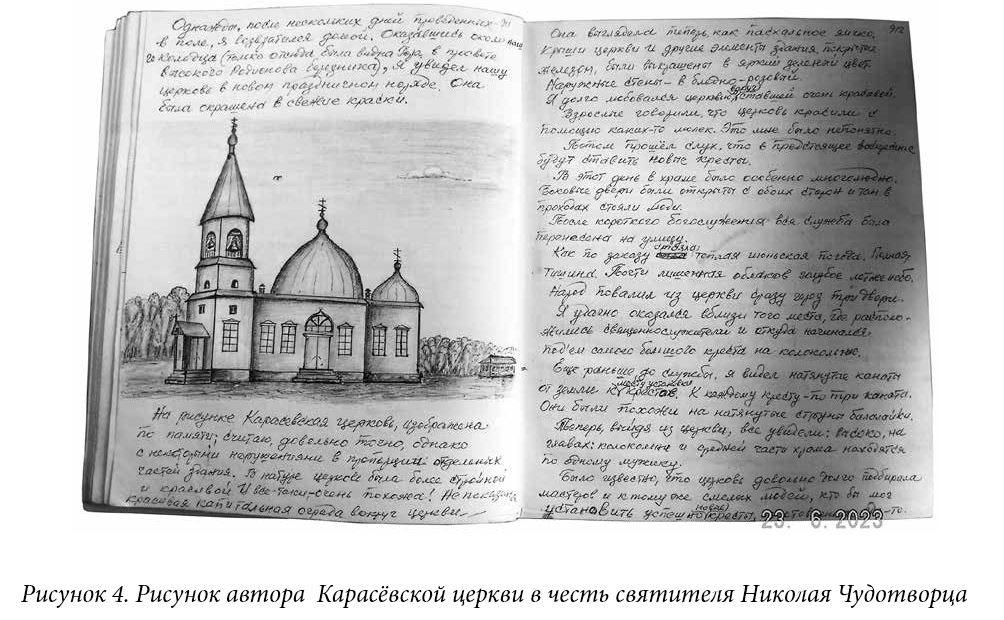 Однажды, после нескольких дней проведённых
в поле, я возвратился домой. Оказавшись около наш
го колодца (только отсюда была видна Гора, в просвете
высокого Родионова березника), я увидел нашу
церковь в новом праздничном наряде. Она
была окрашена в свежие краски.
На рисунке Карасёвская церковь, изображена
по памяти; считаю, довольно точно, однако
с некоторыми нарушениями в пропорции отдельных
частей здания. В натуре церковь была более стройной
и красивой И все-таки-очень похожа! Не показана
красивая капитальная ограда вокруг церкви
912
Она выглядела теперь, как пасхальное яичко.
Крыши церкви и другие элементы здания, покрытые
железом, были выкрашены в яркий зеленый цвет.
Наружные стены - в бледно-розовый.
Я долго любовался церковью, вдруг ставшей очень красивой.
Взрослые говорили, что церковь красили с
помощью каких-то люлек. Это мне было непонятно.
Потом прошёл слух, что в предстоящее воскресение
будут ставить новые кресты.
В этот день в храме было особенно многолюдно.
Боковые двери были открыты с обоих сторон и там в
проходах стояли люди.
После короткого богослужения вся служба была
перенесена на улицу.
Как по заказу стояла теплая июньская погода. Полная
тишина. Почти лишенная облаков голубое небо.
Народ повалил из церкви сразу через три двери.
Я удачно оказался вблизи того места, где располо-
жились священнослужители и откуда начинался
под'ем самого большого креста на колокольню.
Еще раньше до службы, я видел натянутые канаты
от земли к месту установки крестов. К каждому кресту - по три каната.
Они были похожи на натянутые струны балалайки.
Теперь, выйдя из церкви, все увидели: высоко, на
главах: колокольни и средней части храма находятся
по одному мужику.
Было известно, что церковь довольно долго подбирала
мастеров и к тому же смелых людей, кто бы мог
установить успешно новые кресты,
23. 6.2023
Рисунок 4. Рисунок автора Карасёвской церкви в честь святителя Николая Чудотворца